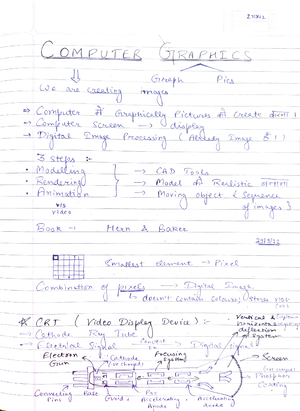 COMPUTER GRAPHICS
Graph Pics
We are creating images
Computer में Graphically Pictures को Create करना।
Computer Screen → display
Digital Image Processing (Already Image है।)
3 steps :-
Modelling → CAD Tools
Rendering → Model को Realistic बनाना
Animation → Moving object (Sequence of images)
video
Book - Hern & Baker
Smallest element → Pixel
Combination of pixels → Digital Image
doesn't contain colours, stores
CRT (Video Display Device) :-
Cathode Ray Tube
Electrical Signal → Digital signal
Convert
Vertical &
Horizontal
deflection
System
Electron
Gun
Cathode
Focusing
System
Screen
Phosphor
Coating
Connecting
Pins
Base
Grid
Pre
Accelerating
Anode
Accelerating
Anode